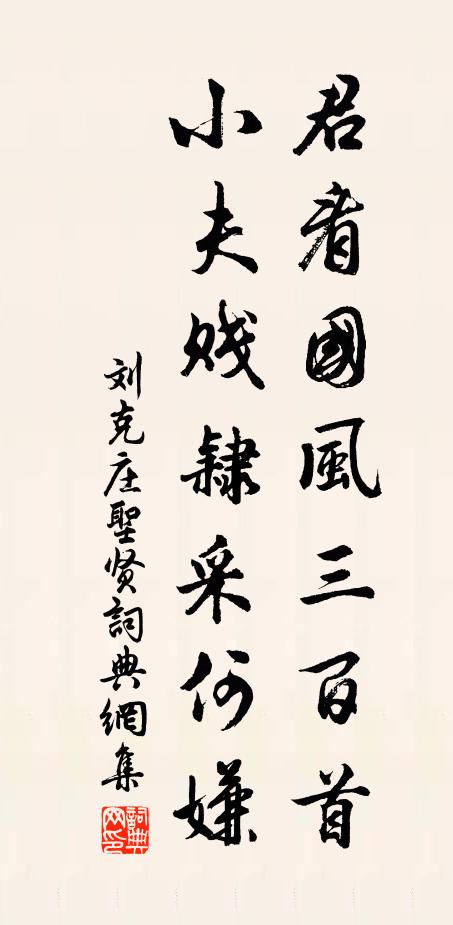 君看國風三百首
小夫賤隸采何嫌
刘克庄聖贤詞典網集
詞典網印